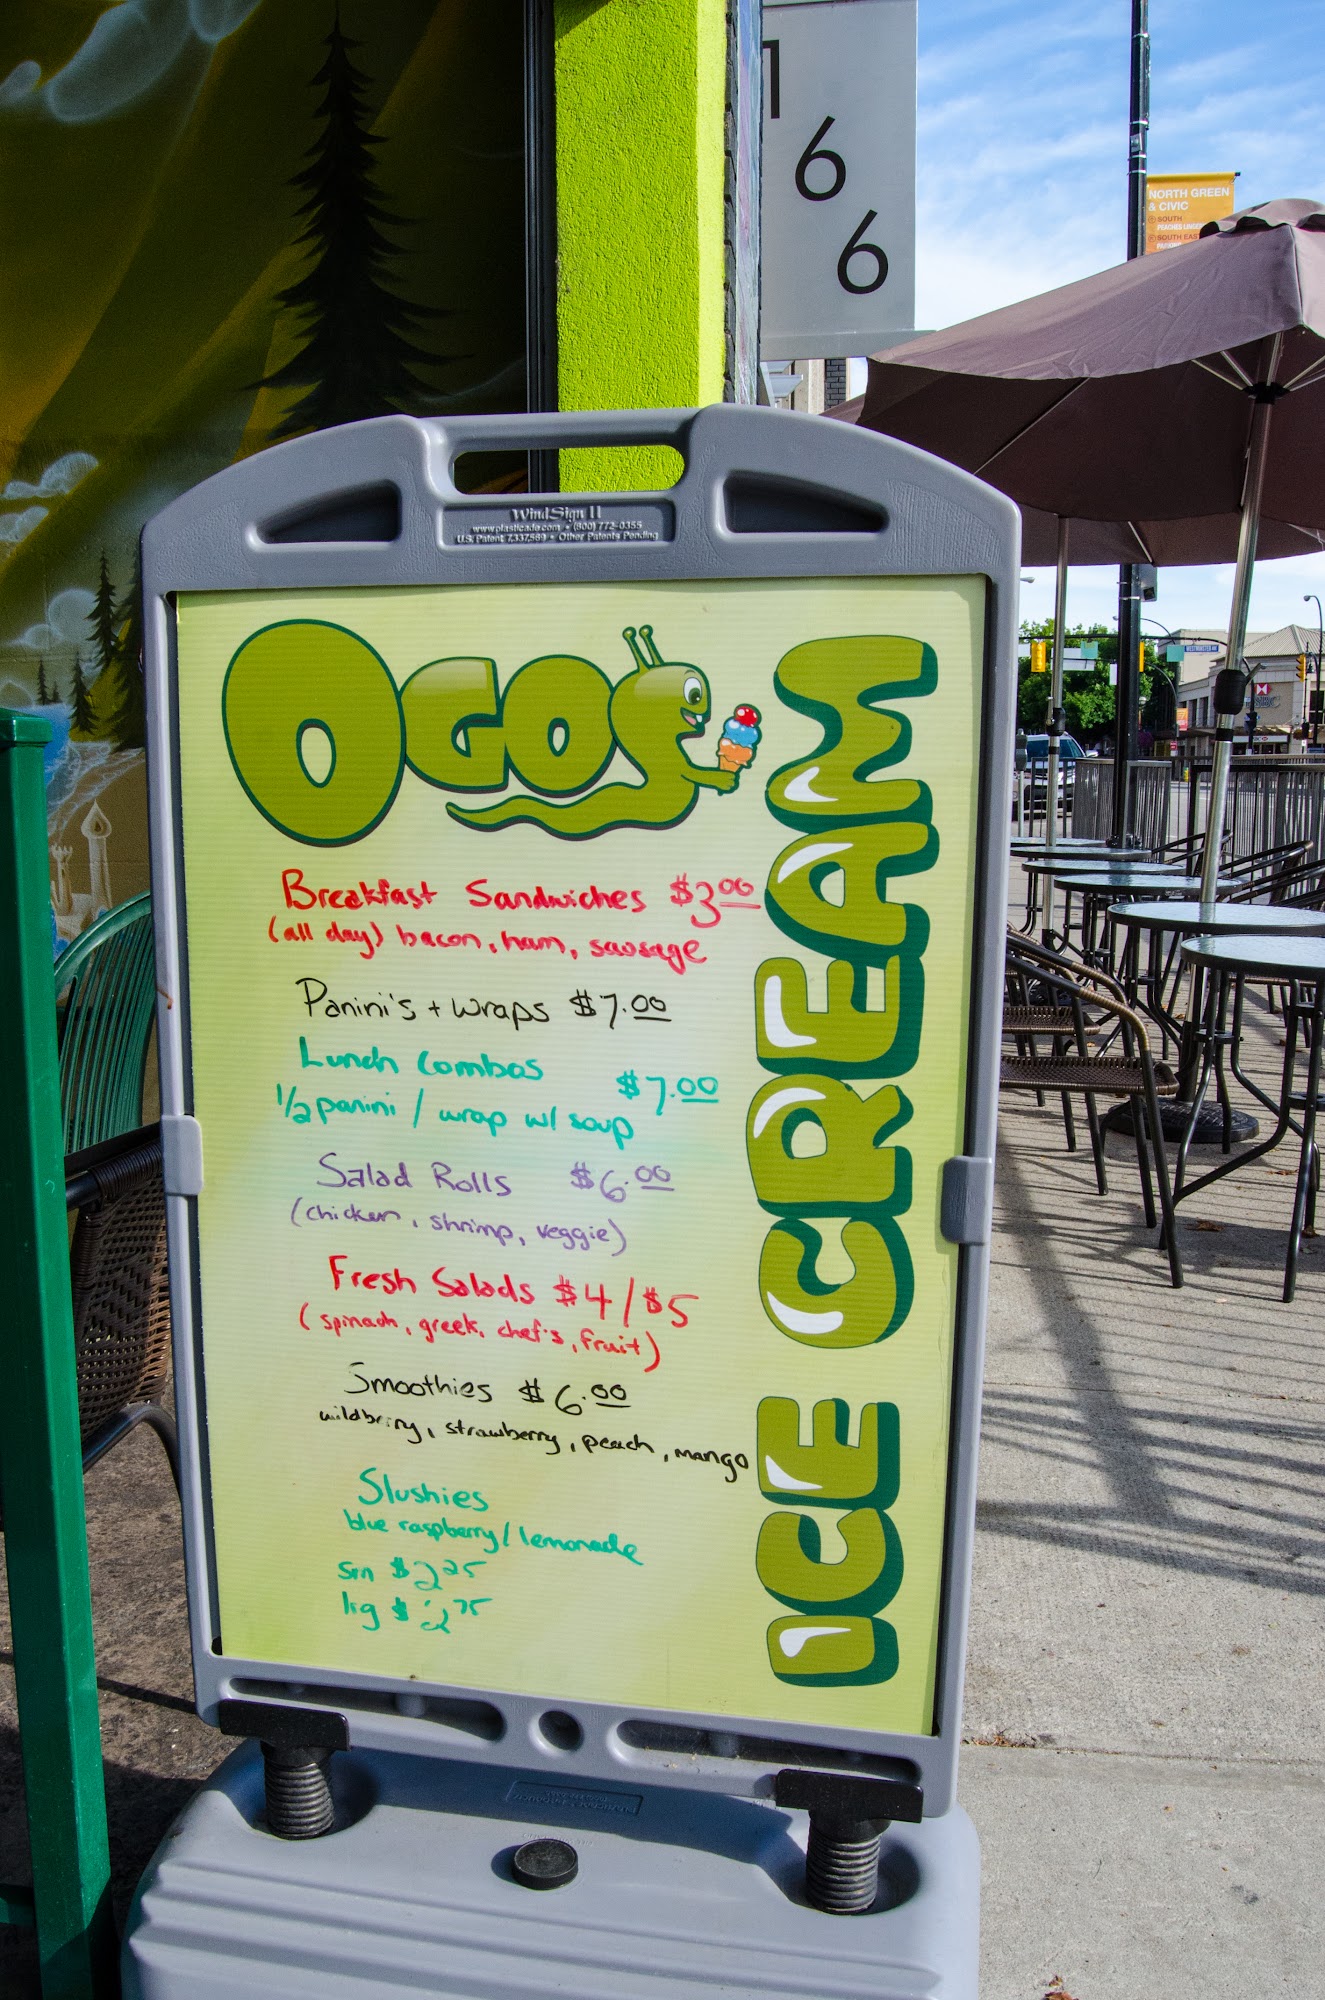 1
6
6
NORTH GREEN
& CIVIC
SOUTH
PEACHES LINGERIE
SOUTH EAST
WindSign II
www.plasticade.com • (800) 772-0355
U.S. Patent 7,337,569 • Other Patents Pending
OGOS
ICE CREAM
Breakfast Sandwiches $3.00
(all day) bacon, ham, sausage
Panini's + wraps $7.00
Lunch Combos $7.00
1/2 panini / wrap w/ soup
Salad Rolls $6.00
(chicken, shrimp, veggie)
Fresh Salads $4/$5
(spinach, greek, chef's, fruit)
Smoothies $6.00
wildberry, strawberry, peach, mango
Slushies
blue raspberry / lemonade
sm $2.25
lrg $2.75
WESTMINSTER AVE